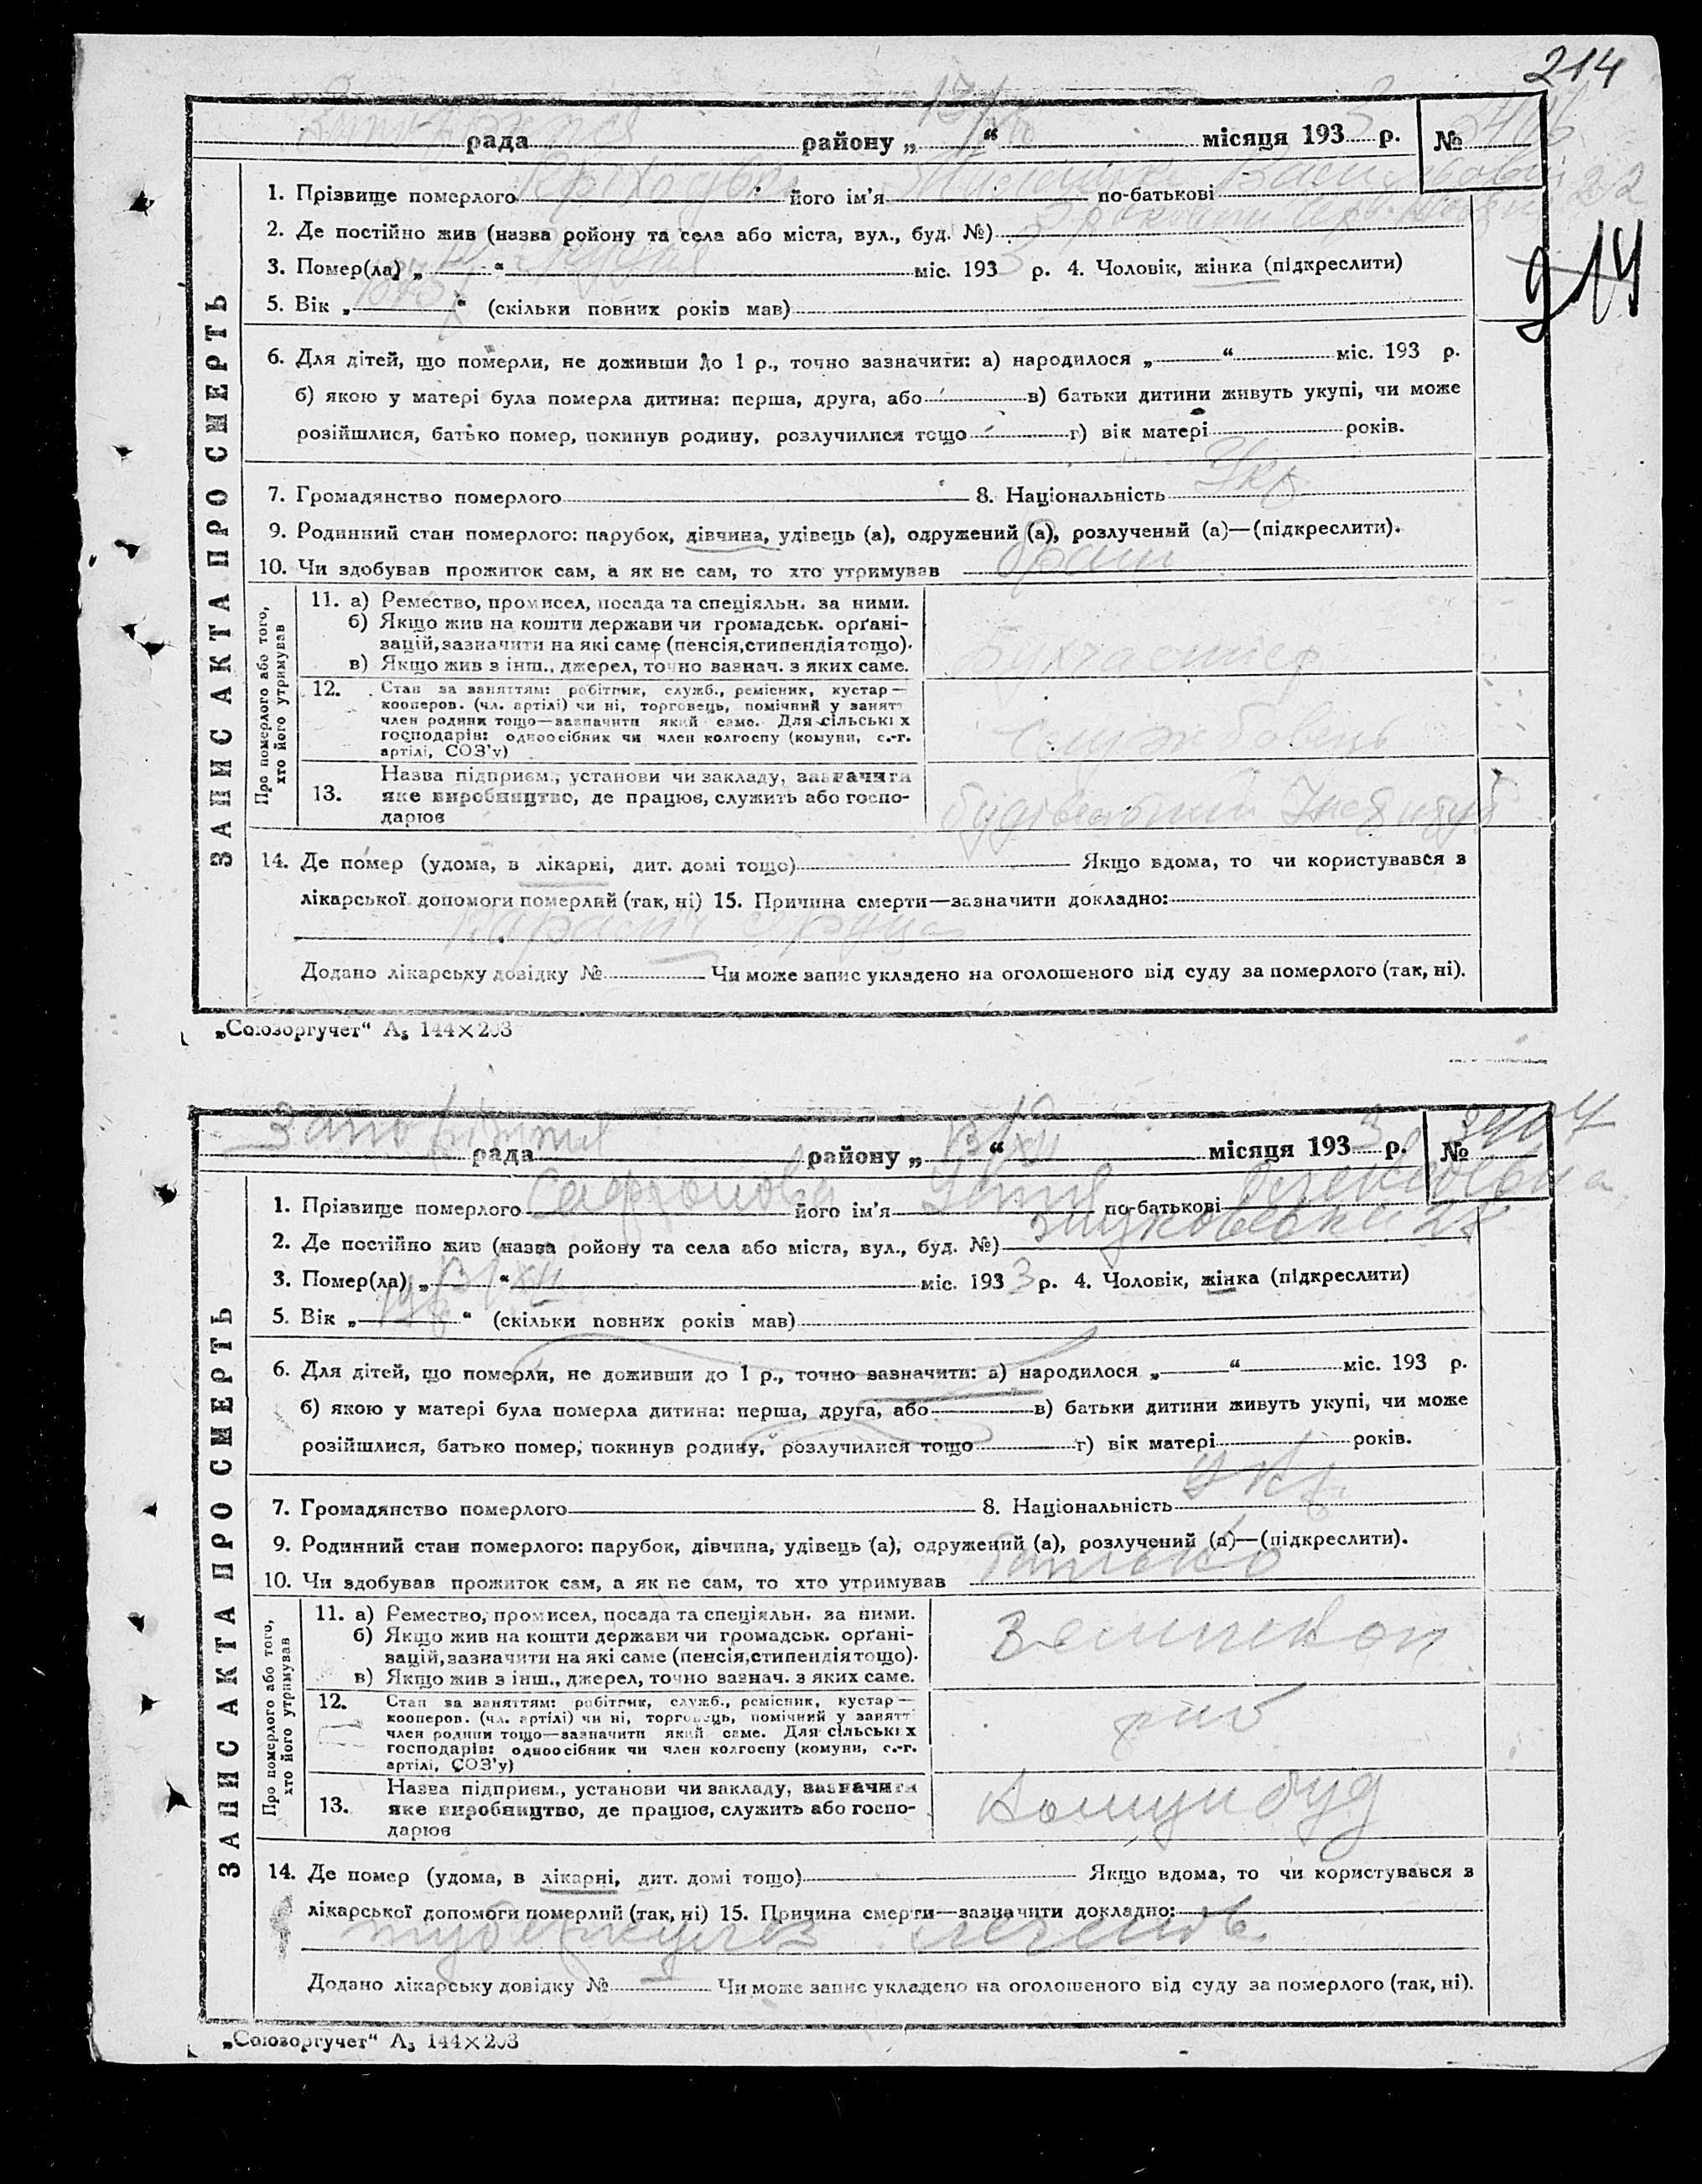 214
рада району „ “ місяця 193 3 р. №
1. Прізвище померлого його ім'я по-батькові
2. Де постійно жив (назва ройону та села або міста, вул., буд. №) 22
3. Помер(ла) „ “ міс. 193 3 р. 4. Чоловік, жінка (підкреслити)
214
5. Вік „ “ (скільки повних років мав)
6. Для дітей, що померли, не доживши до 1 р., точно зазначити: а) народилося „ “ міс. 193 р.
б) якою у матері була померла дитина: перша, друга, або в) батьки дитини живуть укупі, чи може
розійшлися, батько помер, покинув родину, розлучилися тощо г) вік матері років.
7. Громадянство померлого 8. Національність Укр
9. Родинний стан померлого: парубок, дівчина, удівець (а), одружений (а), розлучений (а)—(підкреслити).
10. Чи здобував прожиток сам, а як не сам, то хто утримував брат
ЗАПИС АКТА ПРО СМЕРТЬ
Про померлого або того, хто його утримував
11. а) Ремество, промисел, посада та спеціяльн. за ними.
б) Якщо жив на кошти держави чи громадськ. орґані-
зацій, зазначити на які саме (пенсія, стипендія тощо).
в) Якщо жив з інш., джерел, точно зазнач. з яких саме.
Бухгалтер
12. Стан за заняттям: робітник, служб., ремісник, кустар —
кооперов. (чл. артілі) чи ні, торговець, помічний у занятт
член родини тощо—зазначити який саме. Для сільських
господарів: одноосібник чи член колгоспу (комуни, с.-г.
артілі, СОЗ'у)
службовець
13. Назва підприєм., установи чи закладу, зазначити
яке виробництво, де працює, служить або госпо-
дарює
будівельний Інститут
14. Де помер (удома, в лікарні, дит. домі тощо) Якщо вдома, то чи користувався з
лікарської допомоги померлий (так, ні) 15. Причина смерти—зазначити докладно:
параліч серця
Додано лікарську довідку № Чи може запис укладено на оголошеного від суду за померлого (так, ні).
„Союзоргучет“ А5 144×203
рада району „ 13/XII “ місяця 193 3 р. № 3404
1. Прізвище померлого Сафронова його ім'я по-батькові
2. Де постійно жив (назва ройону та села або міста, вул., буд. №) 
3. Помер(ла) „ 13/XII “ міс. 193 3 р. 4. Чоловік, жінка (підкреслити)
5. Вік „ “ (скільки повних років мав)
6. Для дітей, що померли, не доживши до 1 р., точно зазначити: а) народилося „ “ міс. 193 р.
б) якою у матері була померла дитина: перша, друга, або в) батьки дитини живуть укупі, чи може
розійшлися, батько помер, покинув родину, розлучилися тощо г) вік матері років.
7. Громадянство померлого 8. Національність Укр.
9. Родинний стан померлого: парубок, дівчина, удівець (а), одружений (а), розлучений (а)—(підкреслити).
10. Чи здобував прожиток сам, а як не сам, то хто утримував батько
ЗАПИС АКТА ПРО СМЕРТЬ
Про померлого або того, хто його утримував
11. а) Ремество, промисел, посада та спеціяльн. за ними.
б) Якщо жив на кошти держави чи громадськ. орґані-
зацій, зазначити на які саме (пенсія, стипендія тощо).
в) Якщо жив з інш., джерел, точно зазнач. з яких саме.
Землекоп
12. Стан за заняттям: робітник, служб., ремісник, кустар —
кооперов. (чл. артілі) чи ні, торговець, помічний у занятт
член родини тощо—зазначити який саме. Для сільських
господарів: одноосібник чи член колгоспу (комуни, с.-г.
артілі, СОЗ'у)
роб
13. Назва підприєм., установи чи закладу, зазначити
яке виробництво, де працює, служить або госпо-
дарює
Комунбуд
14. Де помер (удома, в лікарні, дит. домі тощо) Якщо вдома, то чи користувався з
лікарської допомоги померлий (так, ні) 15. Причина смерти—зазначити докладно:
туберкульоз легенів
Додано лікарську довідку № Чи може запис укладено на оголошеного від суду за померлого (так, ні).
„Союзоргучет“ А5 144×203